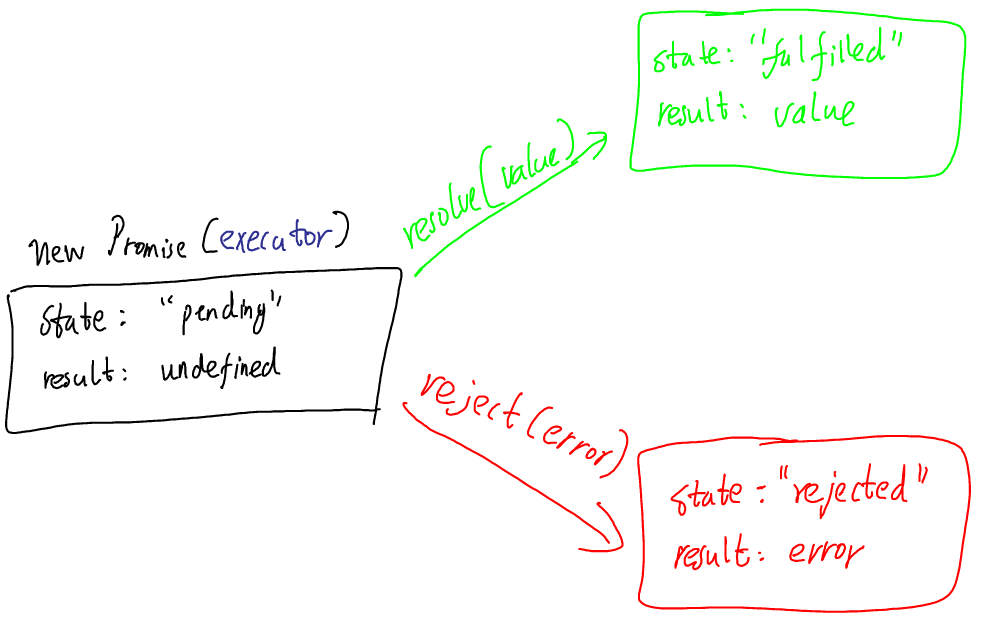 new Promise (executor)
state: "pending"
result: undefined
resolve(value)
state: "fulfilled"
result: value
reject(error)
state: "rejected"
result: error